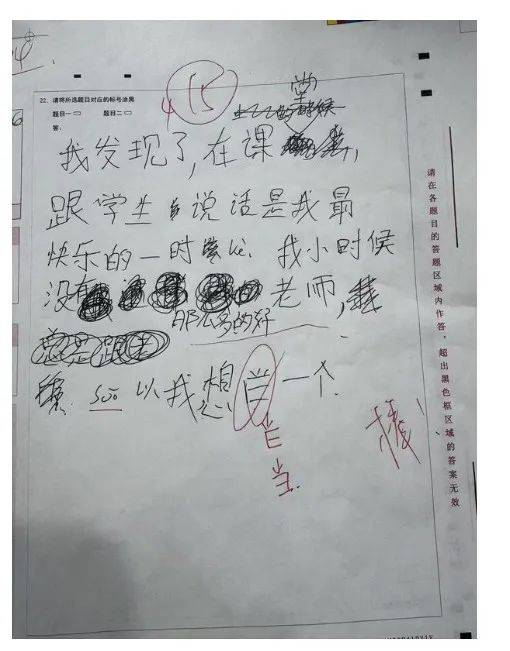 15
22. 请将所选题目对应的标号涂黑
题目一 题目二
答:
的时候
堂
我发现了,在课
跟学生说话是我最
快乐的一时
我小时候
没有
老师,
那么多的好
总是跟老
soo 以我想当一个
当
棒!
请在各题目的答题区域内作答,超出黑色框区域的答案无效